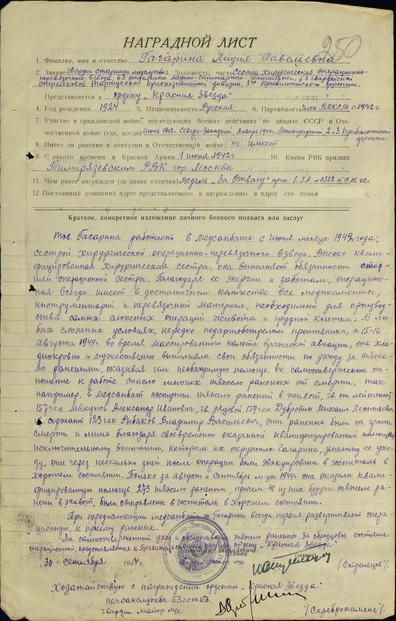 НАГРАДНОЙ ЛИСТ
250
1. Фамилия, имя и отчество Гагарина Лидия Савельевна
2. Звание Гвардии старшина Должность, часть Сестра хирургическая операционно-
перевязочного взвода, 63 медико-санитарного батальона, 53 гвардейской
стрелковой Тартуской Краснознаменной дивизии, 3го Прибалтийского фронта.
Представляется к ордену „Красная Звезда"
4. Год рождения 1924 5. Национальность Русская 6. Партийность Член ВЛКСМ с 1942 г.
7. Участие в гражданской войне, последующих боевых действиях по защите СССР и
Отечественной войне (где, когда) Июнь 1942г. Северо-Западный, Ленинградский 2 и 3 Прибалтийский
фронта
8. Имеет ли ранения и контузии в Отечественной войне не имеет
9. С какого времени в Красной Армии 1 июня 1942 г. 10. Каким РВК призван
Тимирязевским РВК гор. Москвы
11. Чем ранее награжден (за какие отличия) медаль „За Отвагу"
12. Постоянный домашний адрес представляемого к награждению и адрес его семьи
Краткое, конкретное изложение личного боевого подвига или заслуг
Тов. Гагарина работает в медсанбате с июня месяца 1942 года,
сестрой хирургической операционно-перевязочного взвода. Высоко квали-
фицированная хирургическая сестра, она выполняет обязанности стар-
шей операционной сестры. Благодаря ее энергии и заботам, операцион-
ная всегда имеет в достаточном количестве все медикаменты,
инструментарий и перевязочный материал, необходимый для производ-
ства самых сложных операций живота и грудной клетки. В лю-
бых сложных условиях, нередко под артобстрелом противника, а 15-16
августа 1944 г. во время массированного налета вражеской авиации, она хла-
днокровно и мужественно выполняла свои обязанности по уходу за тяжело
ранеными, оказывая им необходимую помощь, ее самоотверженное от-
ношение к работе спасло многих тяжело раненых от смерти, так
например, в медсанбат поступили тяжело раненый в живот, гв. ст. лейтенант
157 гсп Александр Иванович, гв. рядовой 157 гсп Дубровин Михаил
и сержант Владимир Васильевич, эти раненые были на грани
смерти и лишь благодаря своевременно оказанной квалифицированной помощи и
исключительному вниманию, которым их окружила Гагарина, умелому ее ухо-
ду, они через несколько дней после операции были эвакуированы в госпиталь в
хорошем состоянии. Только за август и сентябрь м-цы 1944 г. она оказала квали-
фицированную помощь 273 тяжело раненым, причем 41 из них будучи тяжело ране-
ны в живот, были отправлены в госпиталь в хорошем состоянии.
При передислокации медсанбата т. Гагарина всегда первая развертывает опера-
ционную, к приему раненых.
За самоотверженный уход и тяжело раненых, за образцовое состояние
операционной, представляется к правительственной ордену „Красная Звезда"
30 сентября 1944 г.
Ходатайствую о награждении орденом „Красная Звезда"
Гвардии майор м/с